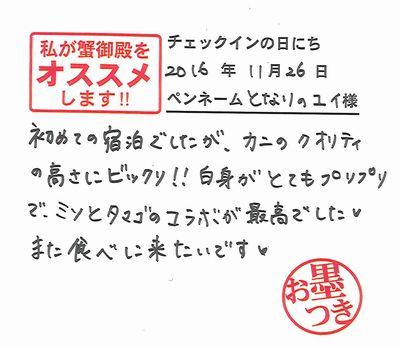 私が蟹御殿を
オススメ
します!!
チェックインの日にち
2016 年 11月26日
ペンネーム となりのユイ様
初めての宿泊でしたが、カニのクオリティ
の高さにビックリ!!白身がとてもプリプリ
で、ミソとタマゴのコラボが最高でした♥
また食べに来たいです♥
お墨つき